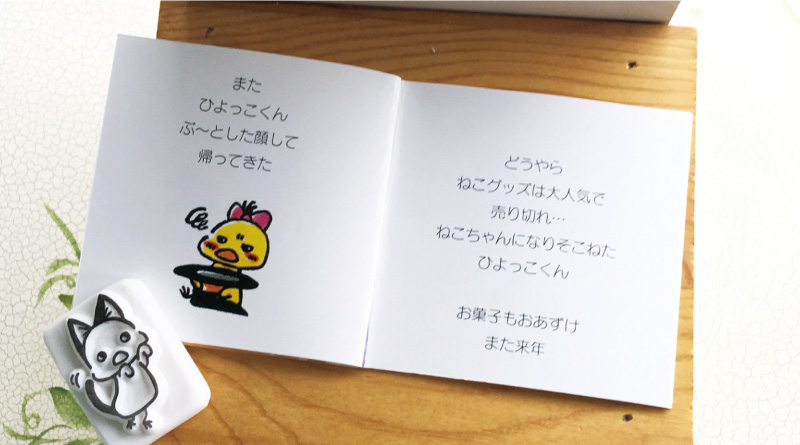 また
ひよっこくん
ぷ～とした顔して
帰ってきた
どうやら
ねこグッズは大人気で
売り切れ…
ねこちゃんになりそこねた
ひよっこくん
お菓子もおあずけ
また来年